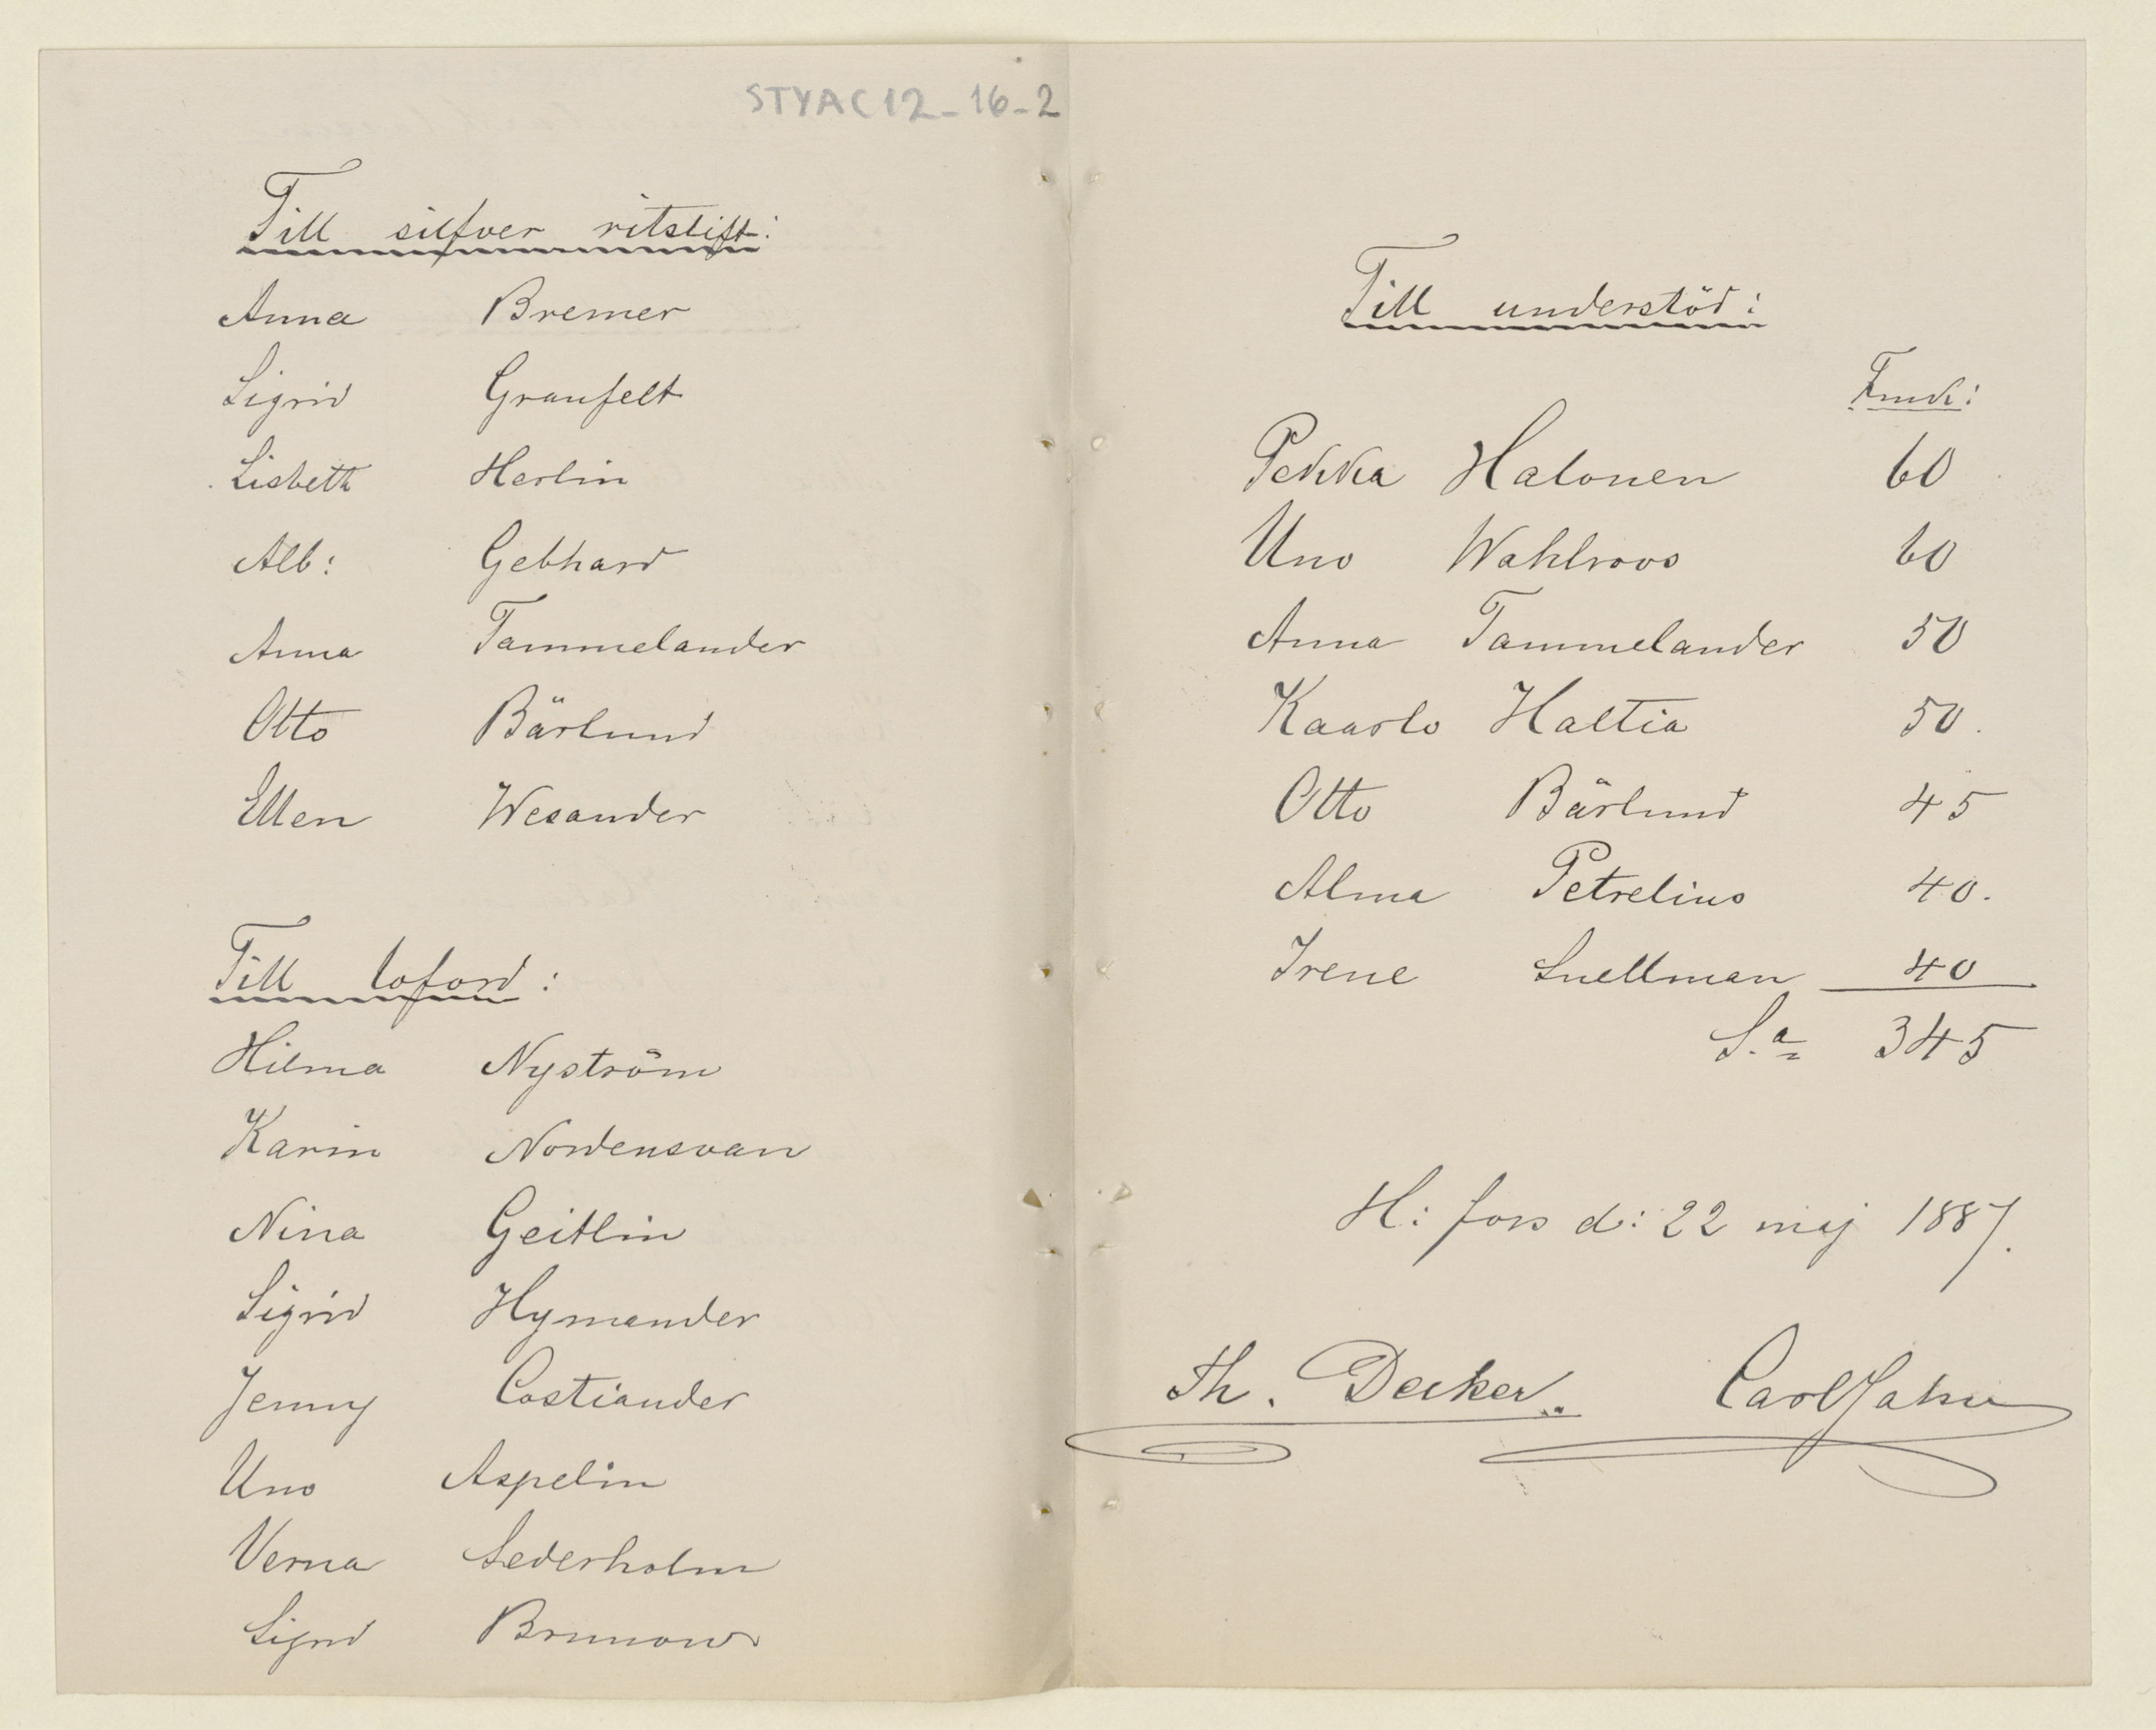 STYAC12-16-2
Till silfver ritstift:
Anna Bremer
Sigrid Granfelt
Lisbeth Herlin
Alb: Gebhard
Anna Tammelander
Otto Bärlund
Ellen Wesander
Till loford:
Hilma Nyström
Karin Nordensvan
Nina Geitlin
Sigrid Hymander
Jenny Costiander
Uno Aspelin
Verna Sederholm
Sigrid Brunow
Till understöd:
Fmk:
Pekka Halonen 60
Uno Wahlroos 60
Anna Tammelander 50
Kaarlo Haltia 50.
Otto Bärlund 45
Alma Petrelius 40.
Irene Snellman 40
S.a 345
H:fors d: 22 maj 1887.
Th. Decker. Carl Jahn